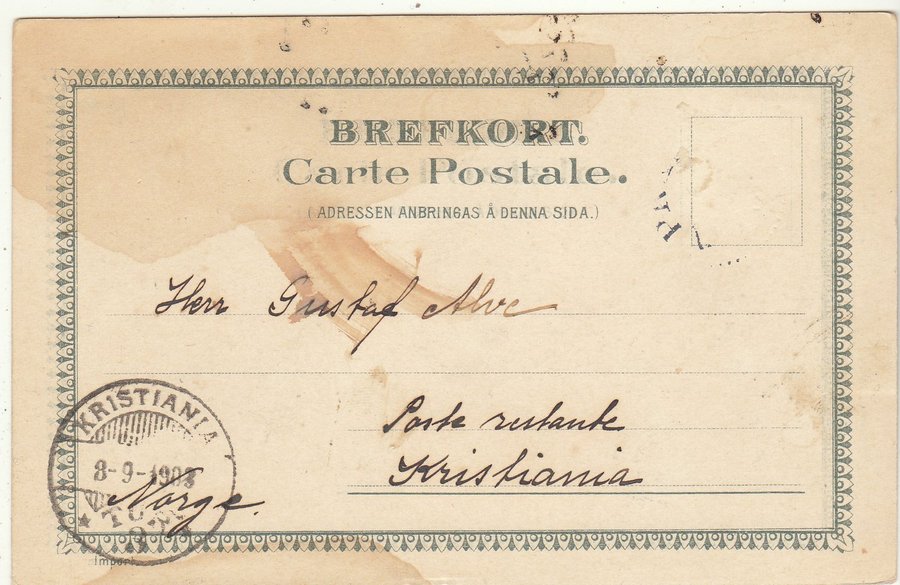 BREFKORT.
Carte Postale.
(ADRESSEN ANBRINGAS Å DENNA SIDA.)
Herr Gustaf Alve
Poste restante
Kristiania
Norge.
KRISTIANIA
8-9-1903
Import.